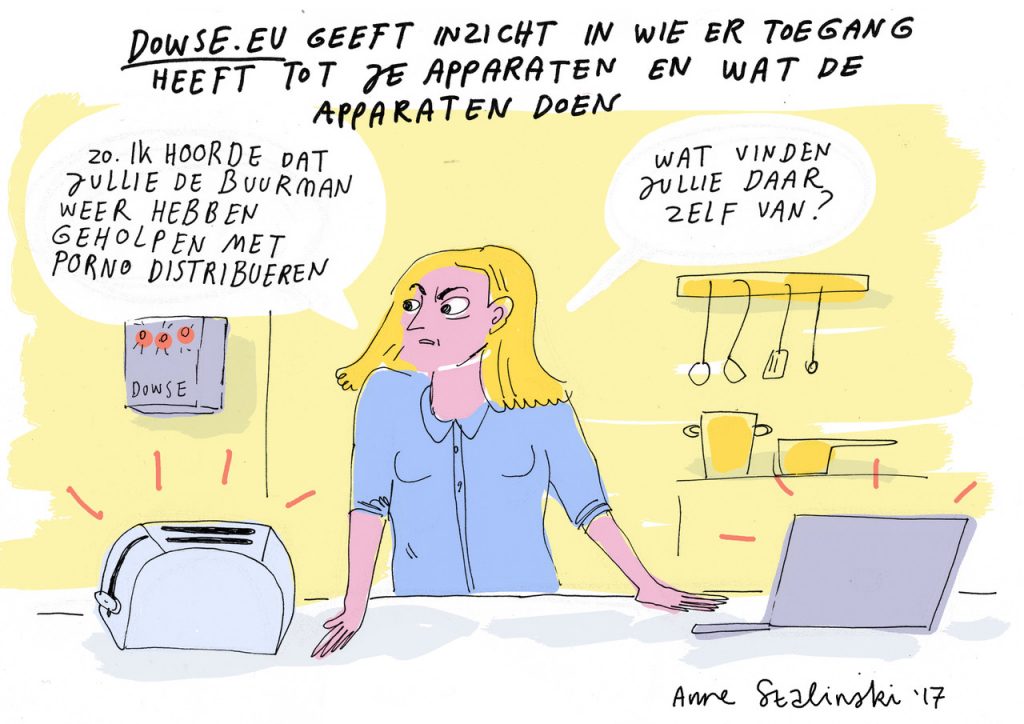 DOWSE.EU GEEFT INZICHT IN WIE ER TOEGANG
HEEFT TOT JE APPARATEN EN WAT DE
APPARATEN DOEN
ZO. IK HOORDE DAT
JULLIE DE BUURMAN
WEER HEBBEN
GEHOLPEN MET
PORNO DISTRIBUEREN
WAT VINDEN
JULLIE DAAR
ZELF VAN?
DOWSE
Anne Stalinski '17